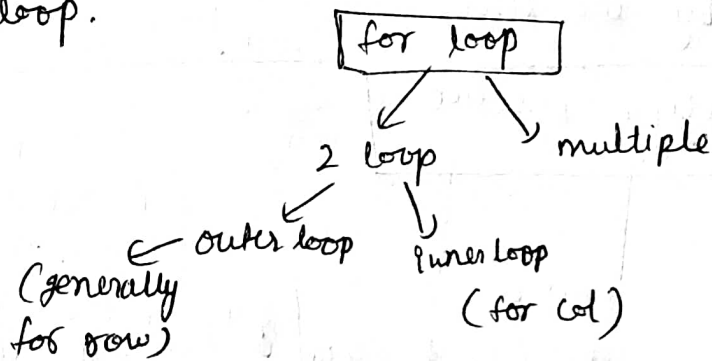 loop.
for loop
2 loop
multiple
outer loop
inner loop
(generally
for row)
(for col)